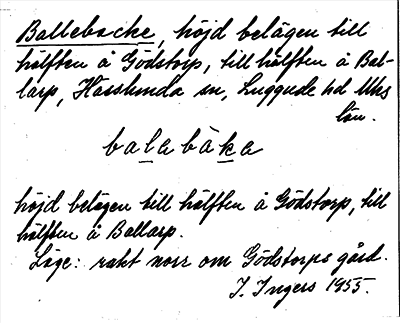 Ballebacke, höjd belägen till
hälften å Gödstorp, till hälften å Bal-
larp, Hässlunda sn, Luggude hd Mhs
län.
balabàka
höjd belägen till hälften å Gödstorp, till
hälften å Ballarp.
Läge: rakt norr om Gödstorps gård.
I. Ingers 1955.